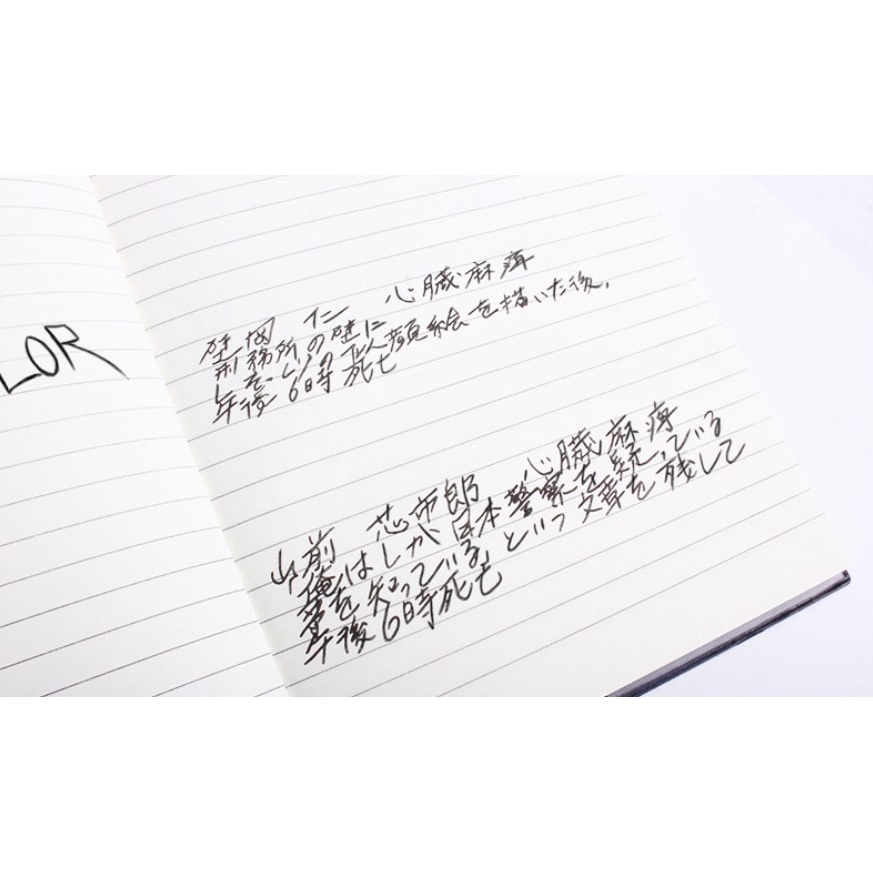 LOR
仁 心臓麻痺
刑務所の壁に
似顔絵を描いた後、
午後6時死亡
山前 芯市郎 心臓麻痺
俺はしが日本警察を疑っている
事を知っている、という文章を残して
午後6時死亡